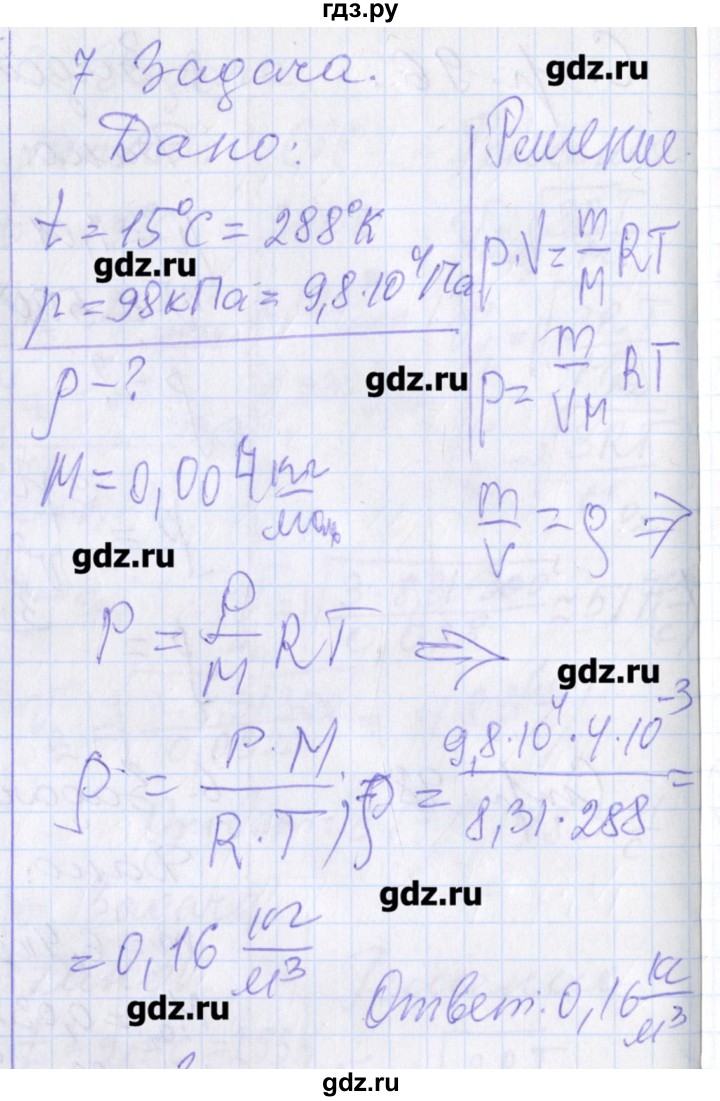 гдз.ру
7 Задача.
gdz.ru
Дано:
Решение.
t = 15°C = 288°K
gdz.ru
p = 98кПа = 9,8·10⁴Па
p·V = m/M RT
ρ - ?
gdz.ru
p = m/VM RT
M = 0,004 кг/моль
m/V = ρ ⇒
gdz.ru
P = ρ/M RT ⇒
gdz.ru
ρ = P·M/R·T; ρ = 9,8·10⁴·4·10⁻³/8,31·288 =
gdz.ru
= 0,16 кг/м³
gdz.ru
Ответ: 0,16 кг/м³
gdz.ru